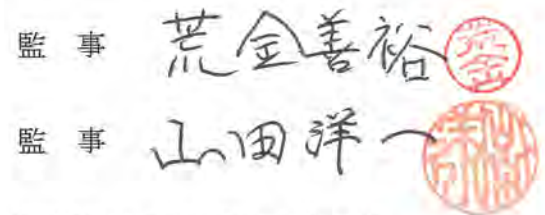 監事 荒金善裕 荒金
監事 山田洋一